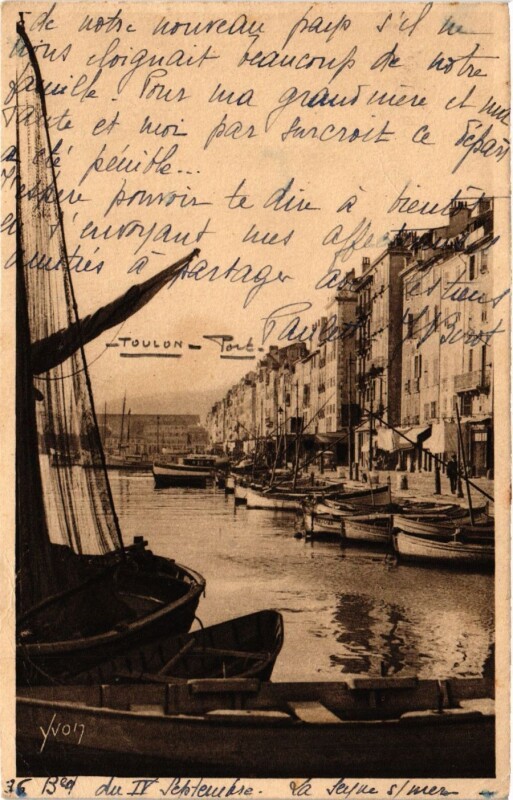 de notre nouveau pays s'il ne
nous éloignait beaucoup de notre
famille. Pour ma grand'mère et ma
Tante et moi par surcroît ce départ
a été pénible...
J'espère pouvoir te dire à bientôt
en t'envoyant mes affectueuses
amitiés à partager avec Étiens
Paulette
- TOULON - Port.
YVON
36 Bed du IV Septembre. La Seyne s/mer